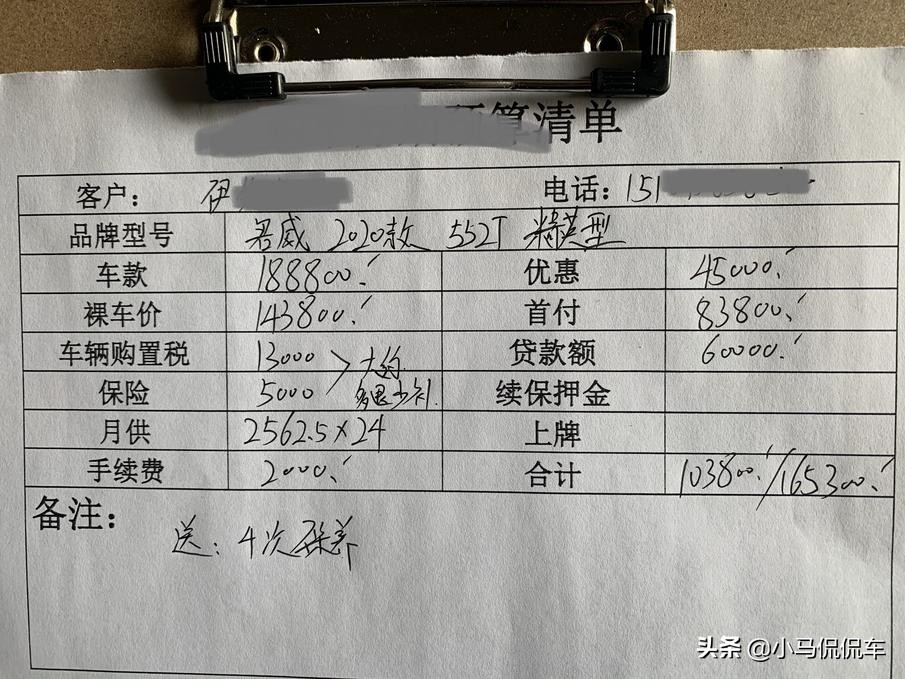 算清单
客户： 伊 电话：151
品牌型号 君威 2020款 552T 精英型
车款 188800. 优惠 45000.
裸车价 143800. 首付 83800.
车辆购置税 13000 大约 贷款额 60000.
保险 5000 多退少补. 续保押金
月供 2562.5×24 上牌
手续费 2000. 合计 103800./165300.
备注：
送：4次保养
头条 @小马侃侃车